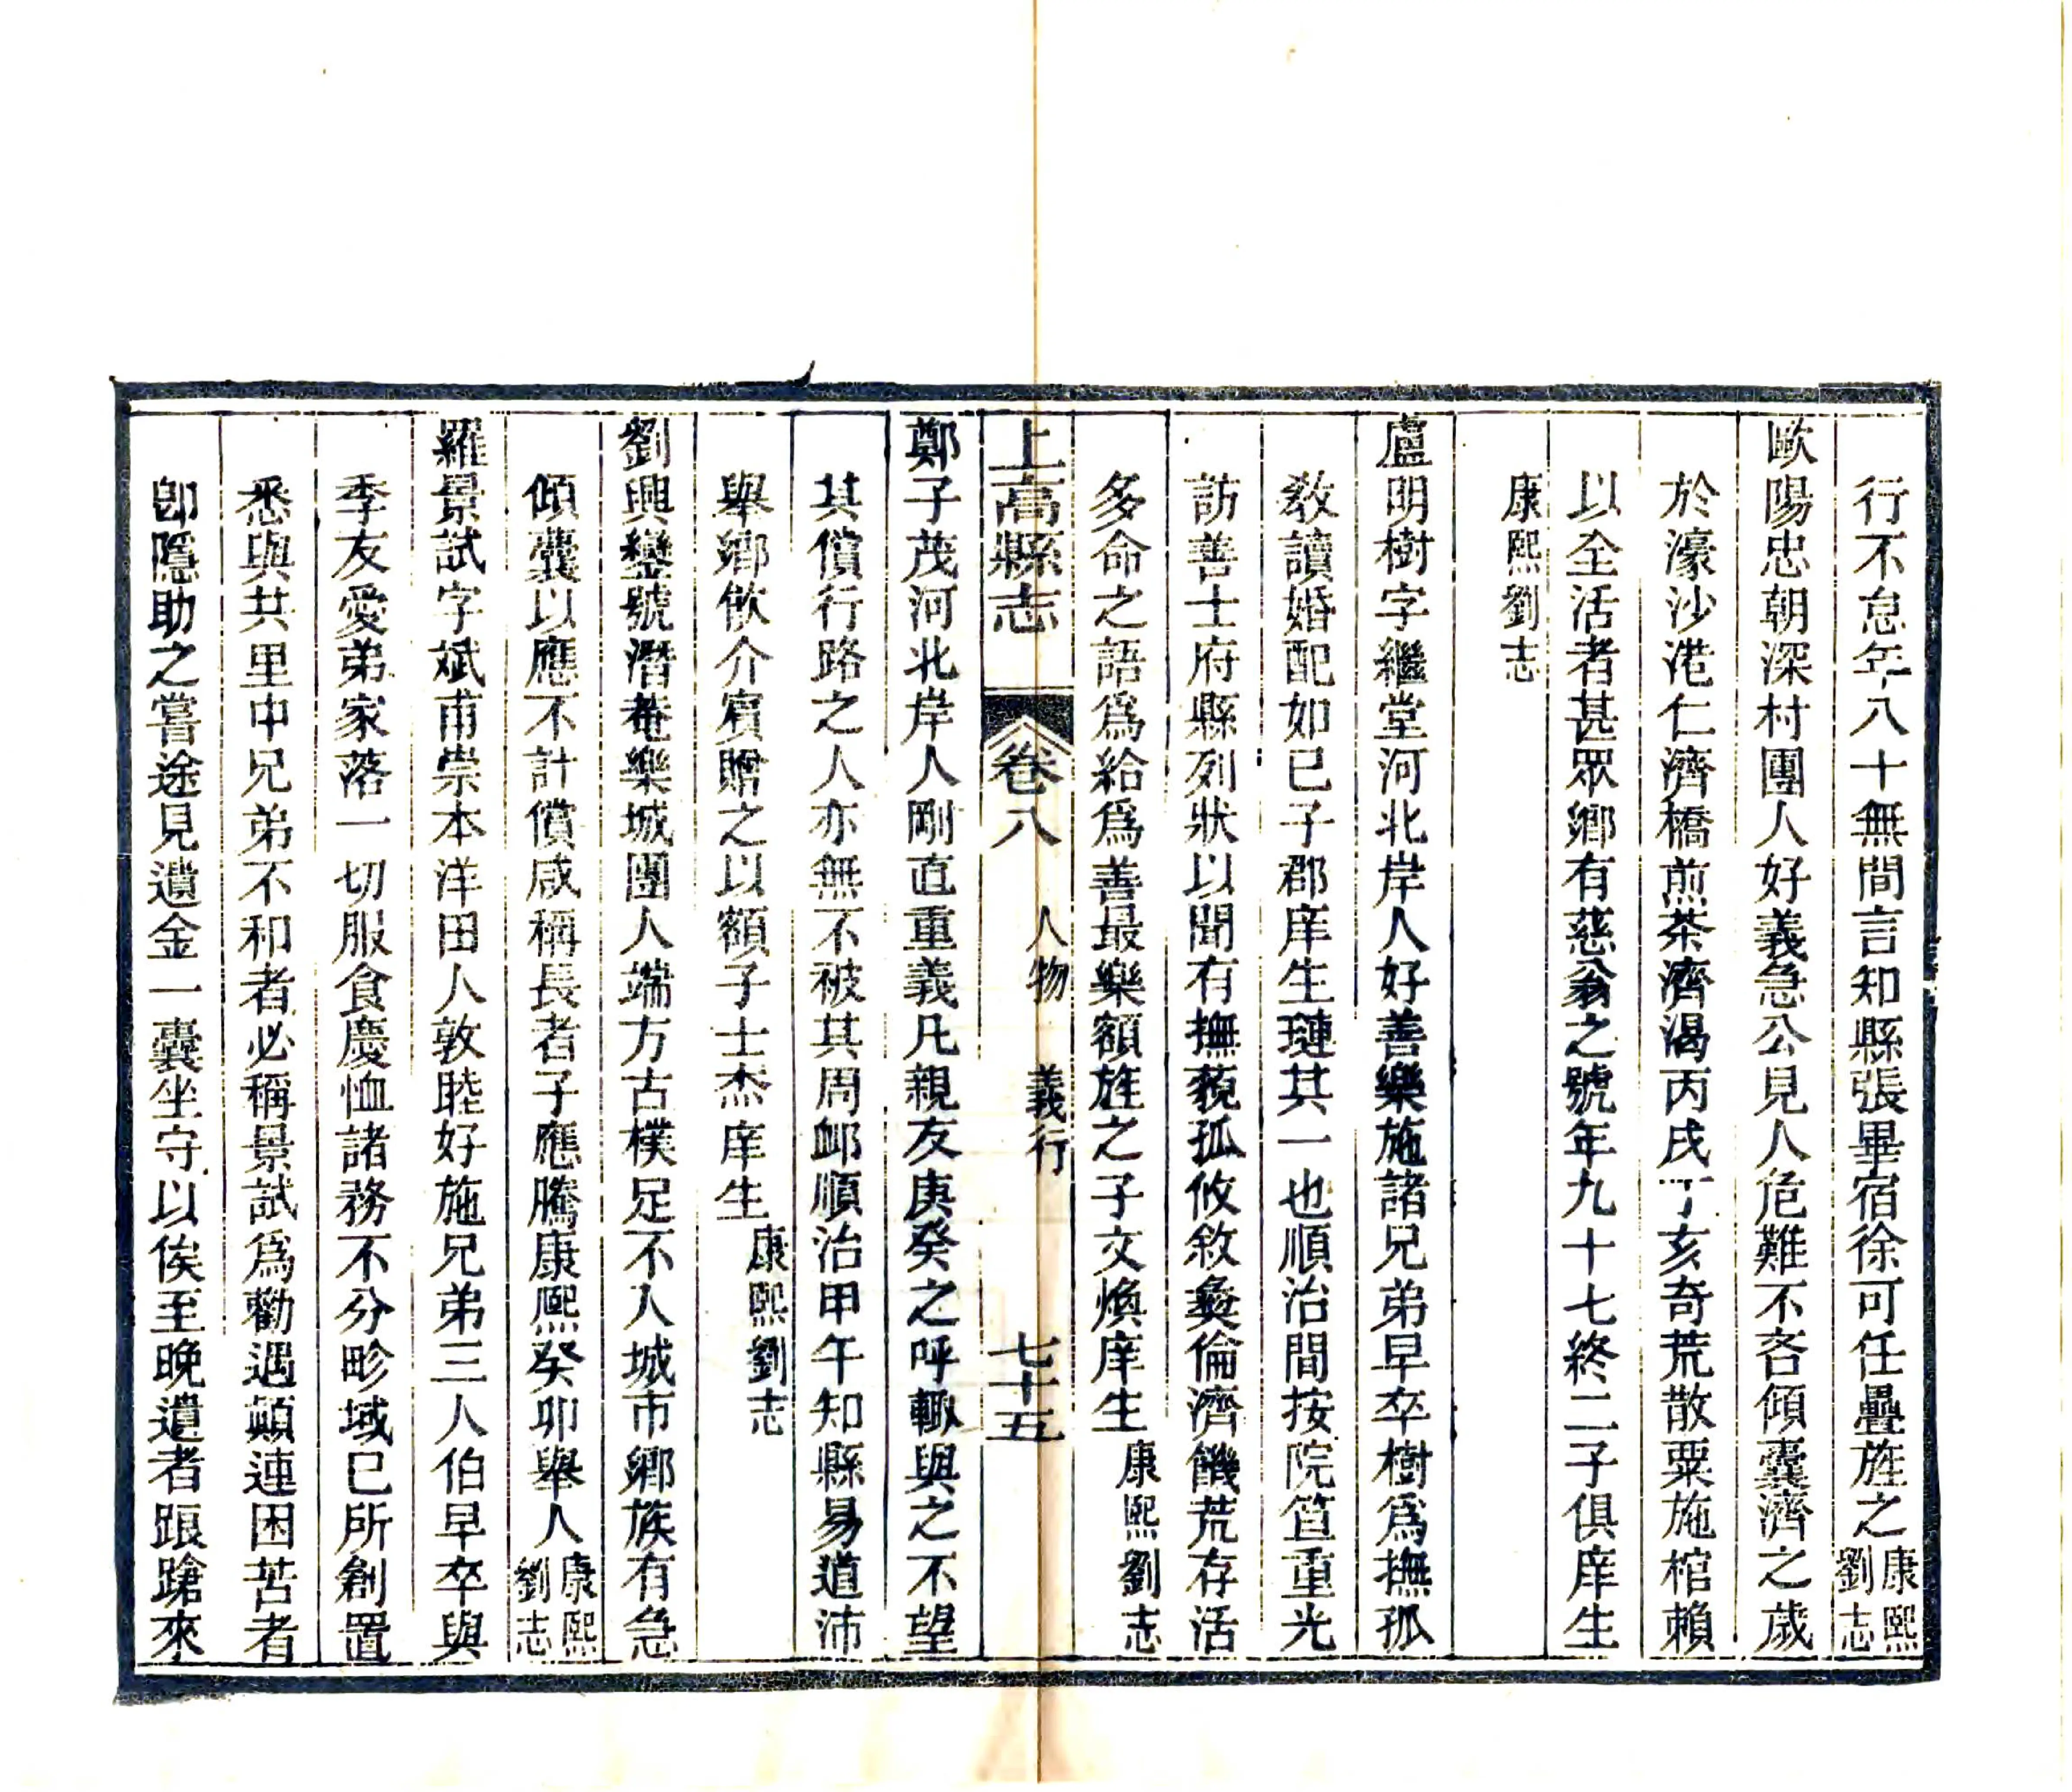 行不怠年八十無間言知縣張畢宿徐可任疊旌之康熙劉志
歐陽忠朝深村團人好義急公見人危難不吝傾囊濟之歲
於濠沙港仁濟橋煎茶濟渴丙戌丁亥奇荒散粟施棺賴
以全活者甚眾鄉有慈翁之號年九十七終二子俱庠生
康熙劉志
盧明樹字繼堂河北岸人好善樂施諸兄弟早卒樹爲撫孤
教讀婚配如已子郡庠生璉其一也順治間按院笪重光
訪善士府縣列狀以聞有撫藐孤攸敘彜倫濟饑荒存活
多命之語爲給爲善最樂額旌之子文煥庠生康熙劉志
上高縣志 卷八 人物 義行 七十五
鄭子茂河北岸人剛直重義凡親友庚癸之呼輙與之不望
其償行路之人亦無不被其周卹順治甲午知縣易道沛
舉鄉飲介賓贈之以額子士杰庠生康熙劉志
劉興鑾號潛菴樂城團人端方古樸足不入城市鄉族有急
傾囊以應不計償咸稱長者子應騰康熙癸卯舉人康熙劉志
羅景試字斌甫崇本洋田人敦睦好施兄弟三人伯早卒與
季友愛弟家落一切服食慶恤諸務不分畛域已所創置
悉與共里中兄弟不和者必稱景試爲勸遇顛連困苦者
卽隱助之嘗途見遺金一囊坐守以俟至晚遺者踉蹌來